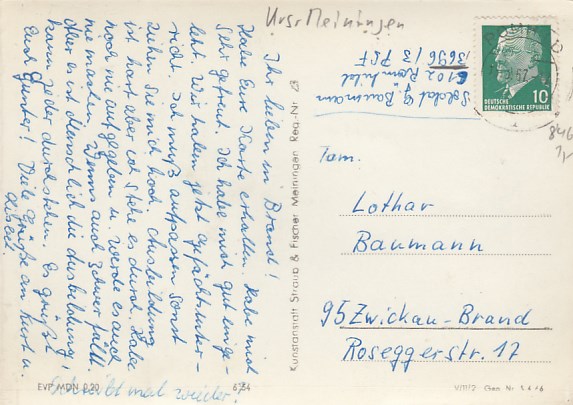 Ursr Meiningen
Ihr lieben in Brand!
Habe Eure Karte erhalten. Habe mich
sehr gefreut. Ich habe mich gut einge-
lebt. Wir haben jetzt gefächtsunter-
richt. Ich muß aufpassen sonst
ziehen Sie mich hoch. Ausbildung
ist hart aber ich stehe es durch. Habe
noch nie aufgegeben u. werde es auch
nie machen. Wenns auch schwer fällt.
Aber es ist die Ausbildung,
kann jeder durchstehen. Es grüßt
Euch Günter! Viele Grüße an Kurt u.
Schreibt mal wieder!
EVP MDN 0,20
6/54
Kunstanstalt Straub & Fischer Meiningen Reg.-Nr.
Soldat G. Baumann
6102 Römhild
13696/3 PSF
DEUTSCHE
DEMOKRATISCHE REPUBLIK
10
846
Fam.
Lothar
Baumann
95 Zwickau-Brand
Roseggerstr. 17
V/11/2